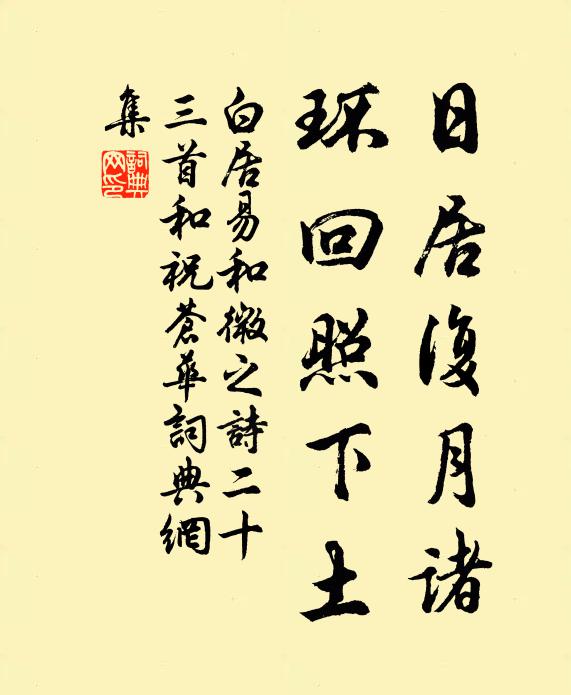 日居復月諸
环回照下土
白居易和微之詩二十
三首和祝蒼華詞典網
集
詞典
网印